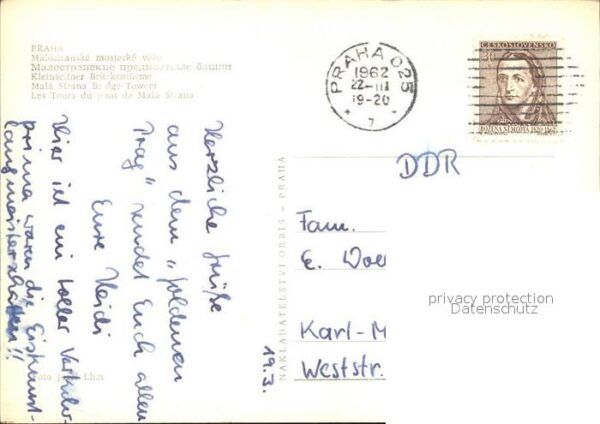 PRAHA
Malostranské mostecké věže
Малостранские предмостные башни
Kleinseitner Brückentürme
Malá Strana Bridge Towers
Les Tours du pont de Malá Strana
PRAHA 025
1962
22-III
19-20
7
ČESKOSLOVENSKO
30
BOŽENA NĚMCOVÁ
DDR
Herzliche Grüße
aus dem „goldenen
Prag" sendet Euch allen
Eure Heidi
Hier ist ein toller Verkehr
prima waren die Eiskunst-
laufmeisterschaften!!
19.3.
NAKLADATELSTVÍ ORBIS - PRAHA
Fam.
E. Woe
Karl-M
Weststr.
privacy protection
Datenschutz
Foto